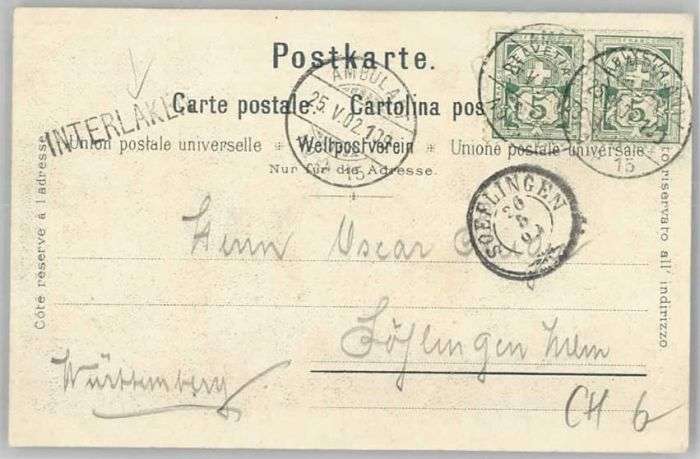 Postkarte.
Carte postale. Cartolina pos
Union postale universelle * Weltpostverein * Unione postale universale
Nur für die Adresse.
INTERLAKEN
AMBULANT
25.V.02.
15
HELVETIA
5
HELVETIA
5
15
SOEFLINGEN
26
5
Côté réservé à l'adresse.
Lato riservato all' indirizzo
Herrn Oscar
Söflingen Ulm
Württemberg
CH 6